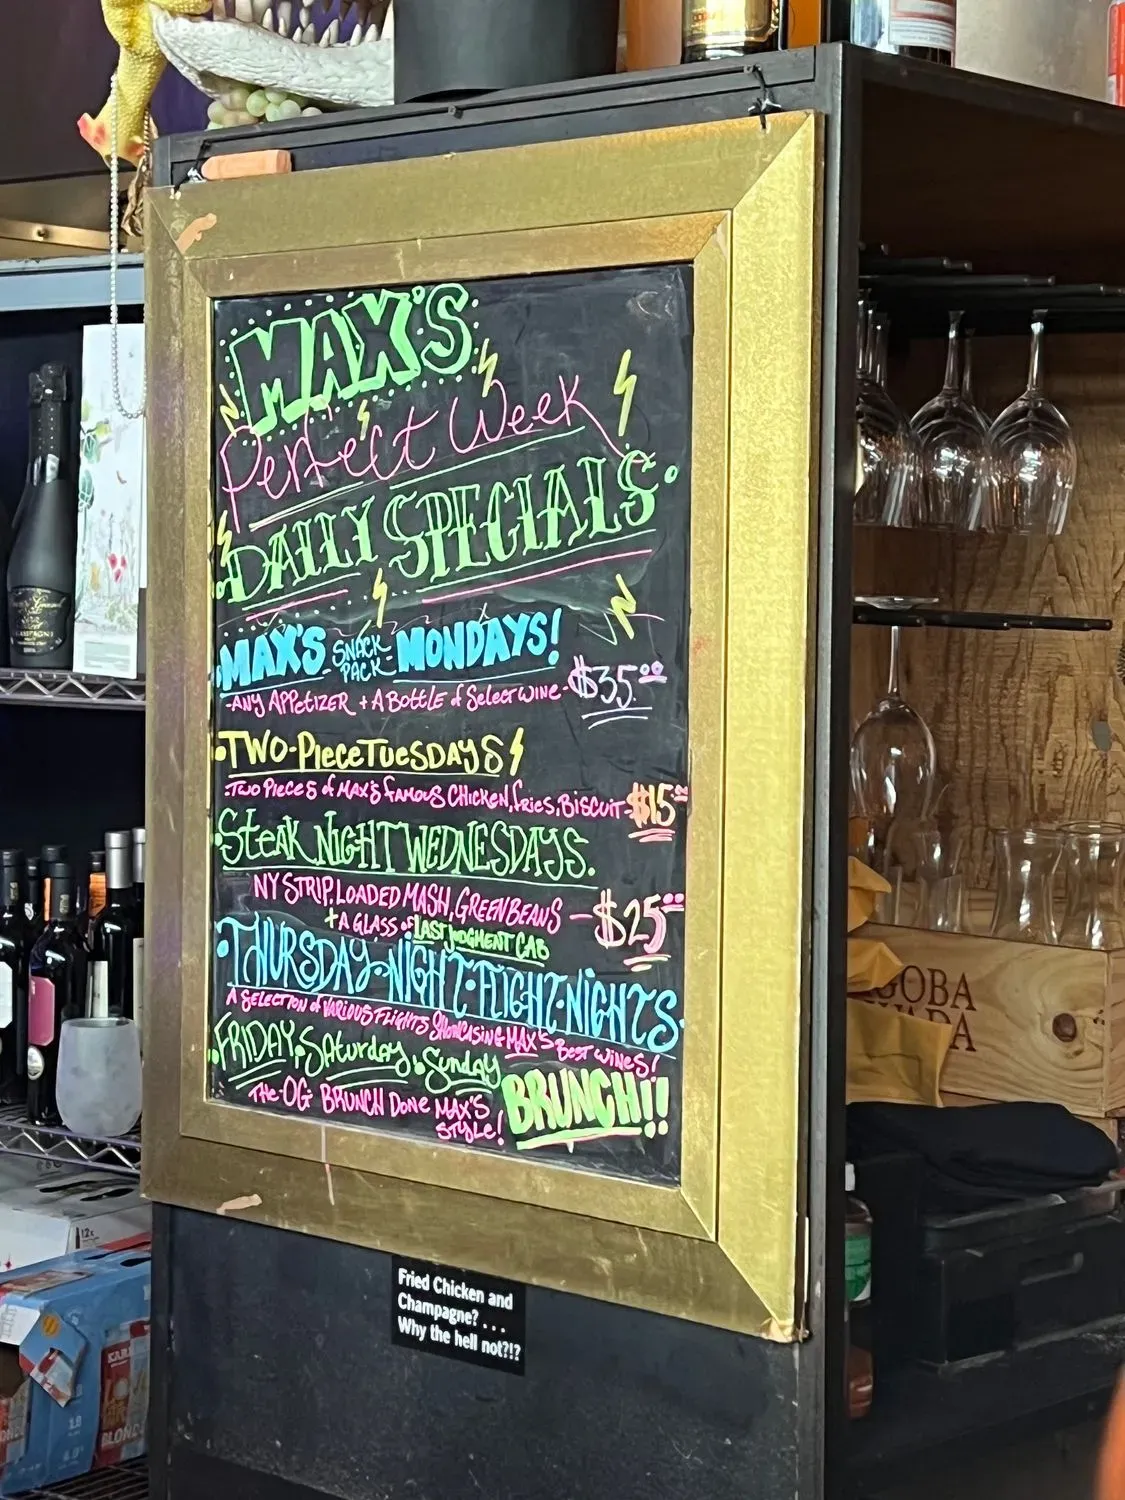 MAX'S
Perfect Week
DAILY SPECIALS
MAX'S SNACK PACK MONDAYS!
-ANY APPETIZER + A BOTTLE of Select WINE- $35.00
TWO-PIECE TUESDAYS
-TWO PIECES of MAX'S famous CHICKEN, fries, BISCUIT- $15.00
Steak NIGHT WEDNESDAYS.
NY STRIP, LOADED MASH, GREEN BEANS - $25.00
+ A GLASS of LAST JUDGMENT CAB
THURSDAY•NIGHT•FLIGHT•NIGHTS
A SELECTION of VARIOUS FLIGHTS SHOWCASING MAX'S BEST WINES!
FRIDAY, Saturday & Sunday BRUNCH!!
THE OG BRUNCH DONE MAX'S STYLE!
Fried Chicken and
Champagne? . . .
Why the hell not?!?
CHAMPAGNE
GOBA
12x
BLONDE